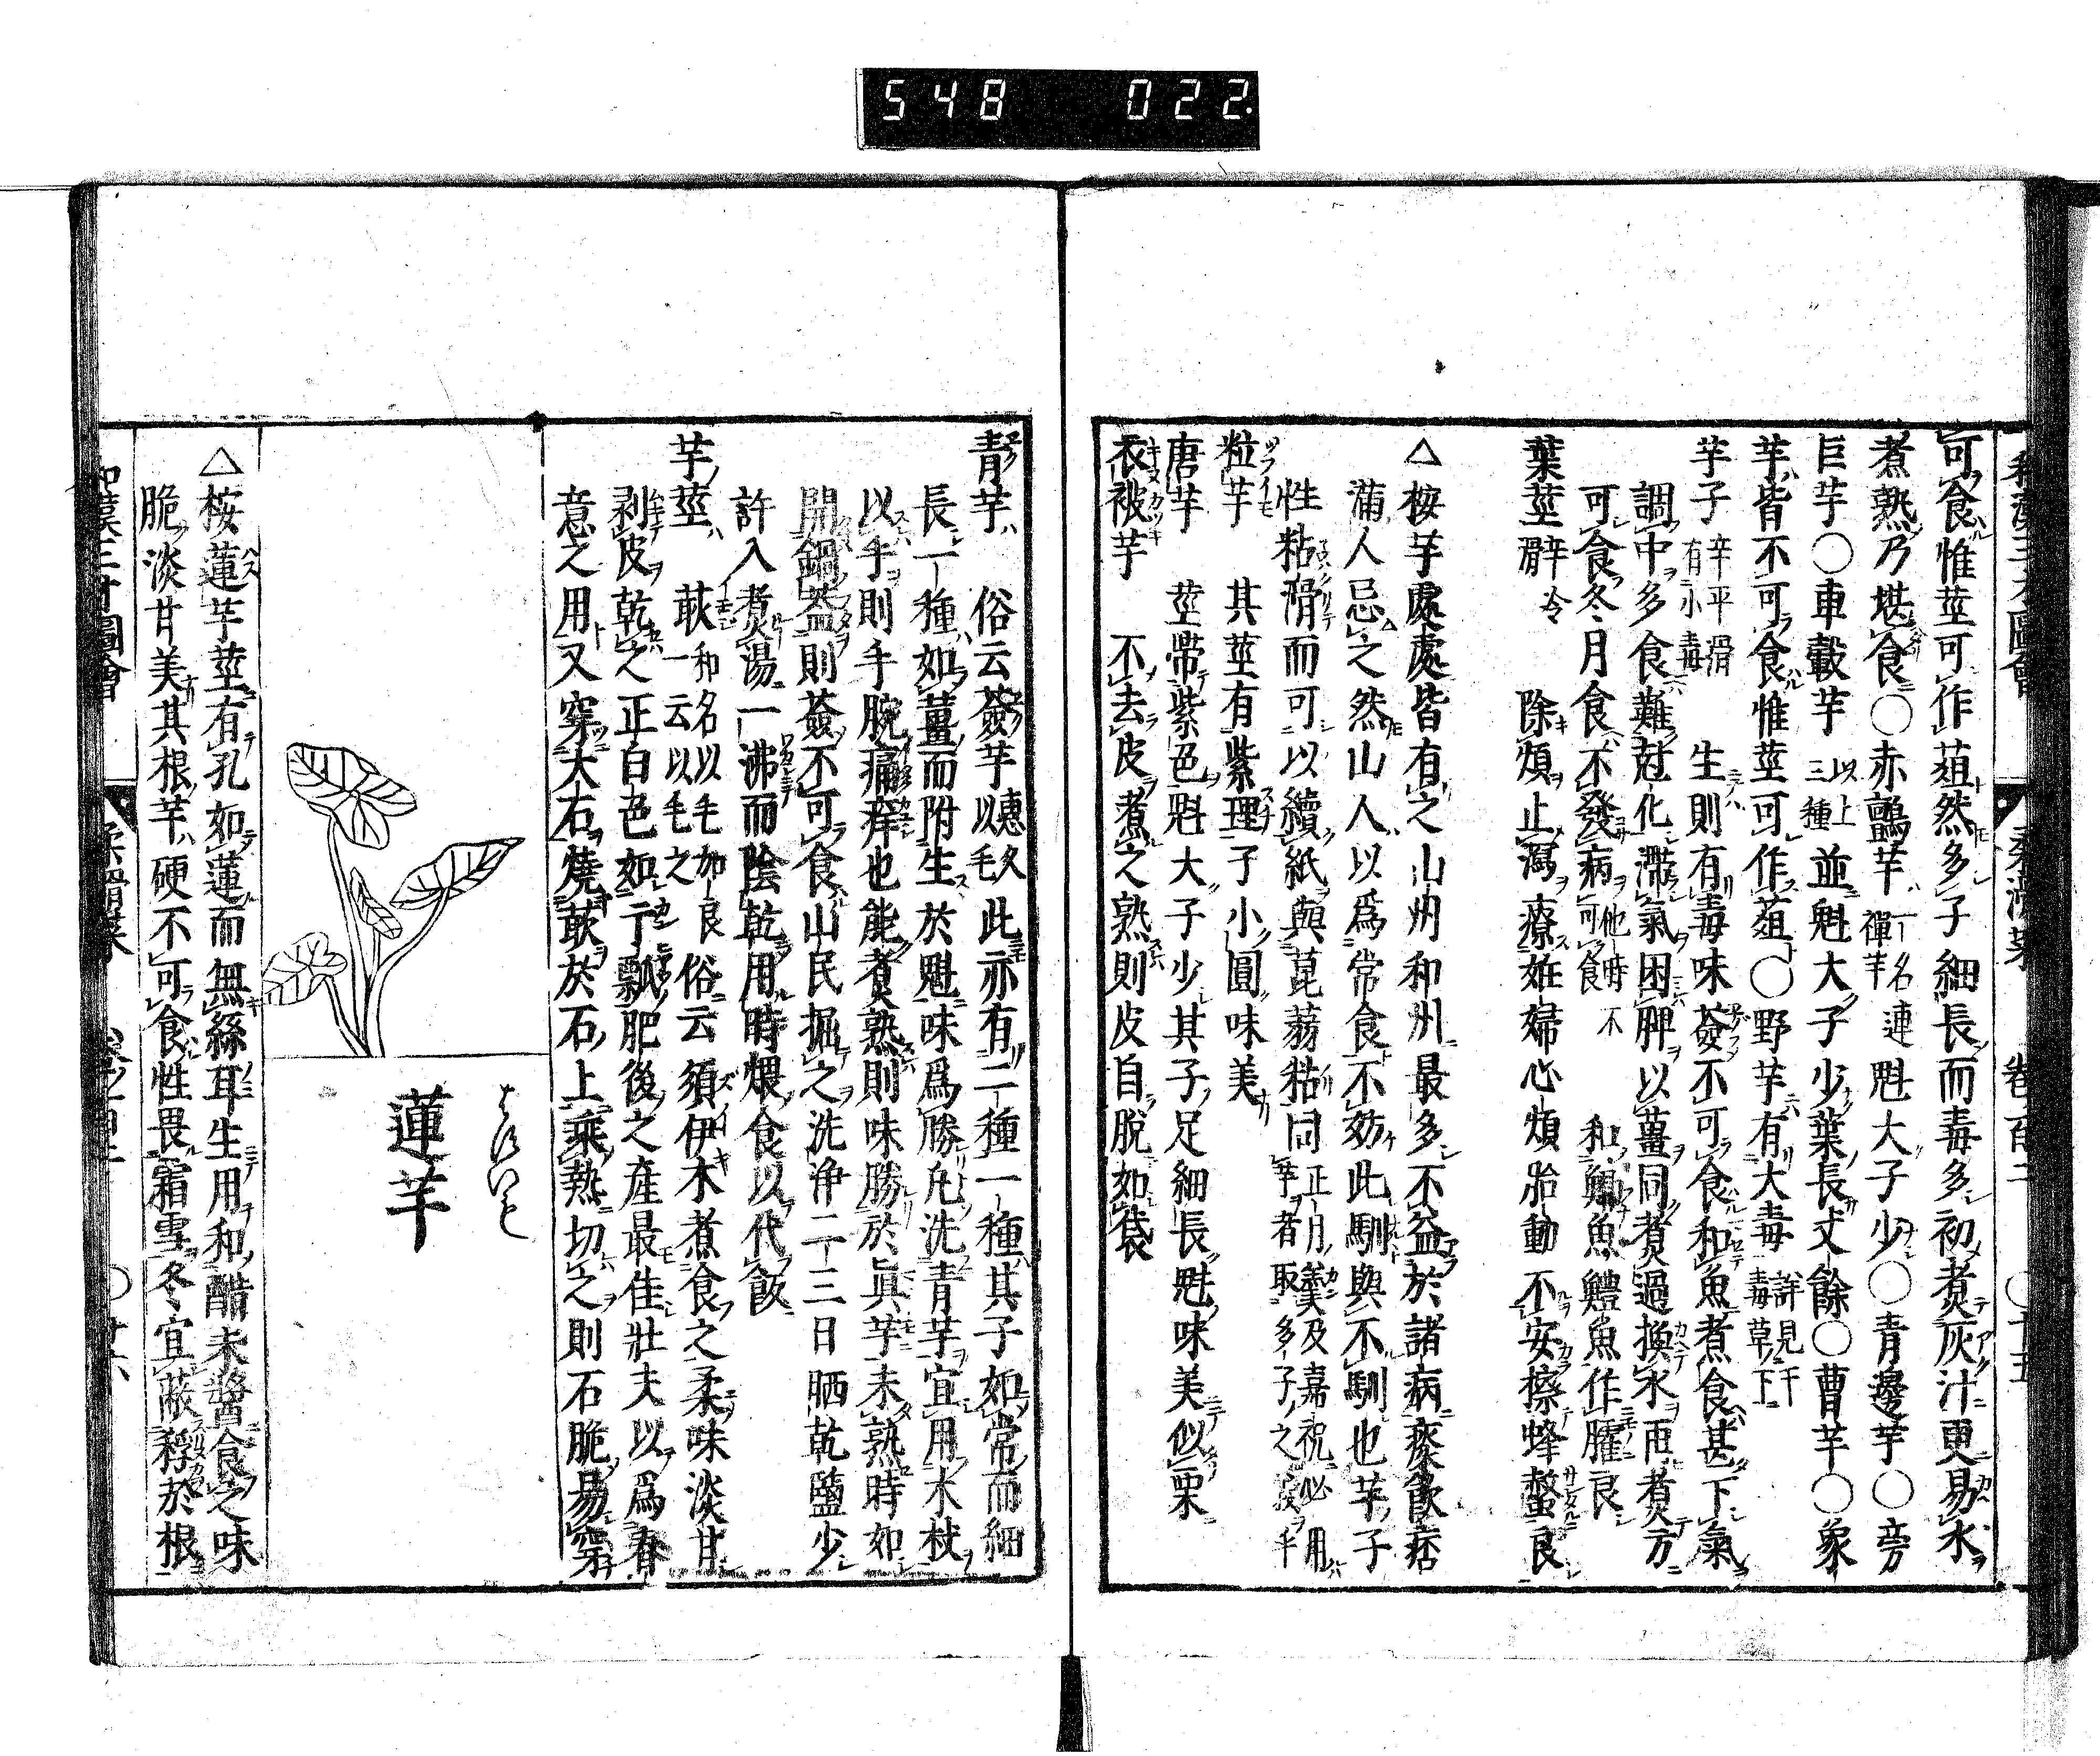 548 022.
和漢三才圖會 柔滑菜 卷百二 ○十五
可食惟莖可作葅然多子細長而毒多初煮灰汁更易水
煮熟乃堪食○赤鸕芋一名連禪芋魁大子少○青邊芋○旁
巨芋○車轂芋以上三種並魁大子少葉長丈餘○曹芋○象
芋皆不可食惟莖可作葅○野芋有大毒詳見于毒草下
芋子辛平滑有小毒 生則有毒味薟不可食和魚煮食甚下氣
調中多食難尅化滯氣困脾以薑同煮過換水再煮方
可食冬月食不發病他時不可食 和鯽魚鱧魚作臛良
葉莖辛冷滑 除煩止瀉療妊婦心煩胎動不安擦蜂螫良
△桉芋處處皆有之山州和州最多不益於諸病瘵飲痞
滿人忌之然山人以爲常食不妨此馴與不馴也芋子
性粘滑而可以續紙與菎蒻粘同正月羹及嘉祝必用芋者取多子之
粒芋 其莖有紫理子小圓味美
唐芋 莖帶紫色魁大子少其子足細長魁味美似栗
衣被芋 不去皮煮之熟則皮自脫如袋
青芋 俗云薟芋 此亦有二種一種其子如常而細
長一種如薑而附生於魁味爲勝凡洗青芋宜用木杖
以手則手腕痛痒也能煮熟則味勝於眞芋未熟時如
開鍋蓋則薟不可食山民掘之洗浄二三日晒乾鹽少
許入煮湯一沸而陰乾用時煨食以代飯
芋莖 䓈和名以毛加良一云以毛之 俗云須伊木煮食之柔味淡甘
剥皮乾之正白色如干瓢肥後之產最佳壯夫以爲春
意之用又穿大石燒䓈於石上乘熱切之則石脆易穿
はすいも
蓮芋
△桉蓮芋莖有孔如蓮而無絲耳生用和醋未醬食之味
脆淡甘美其根芋硬不可食性畏霜雪冬宜蔽稃於根